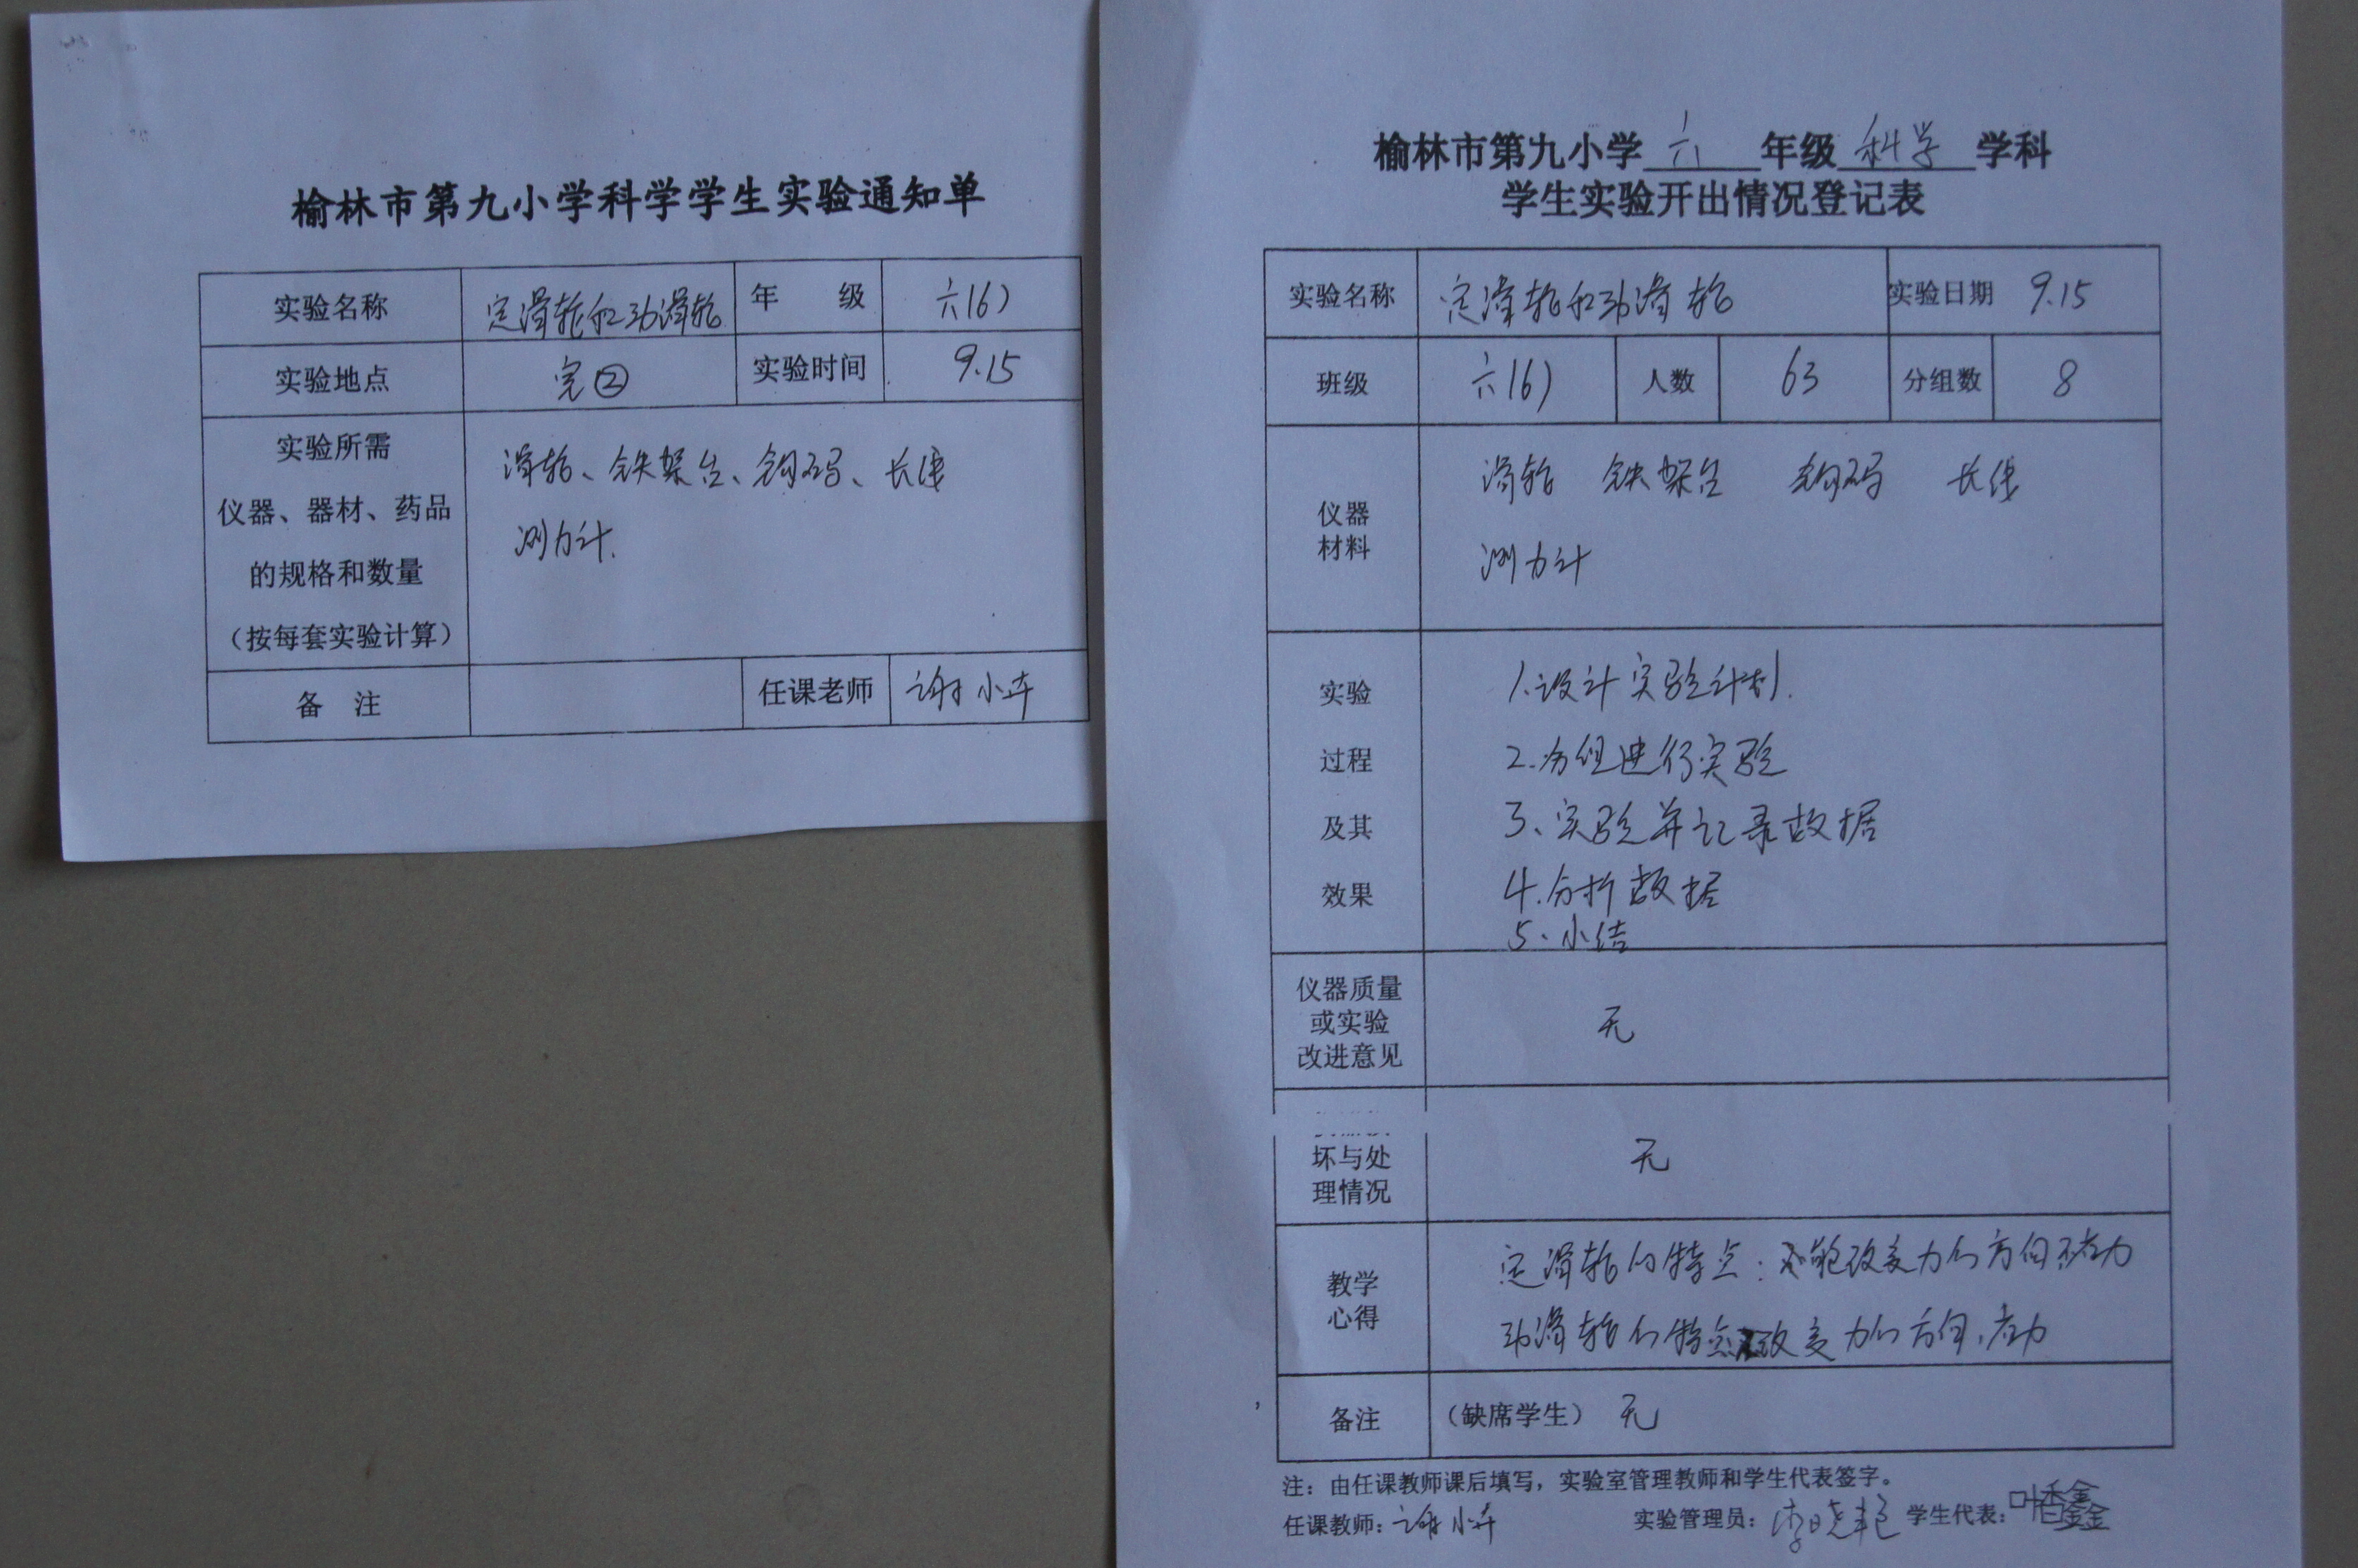 榆林市第九小学科学学生实验通知单
实验名称 定滑轮和动滑轮 年 级 六(6)
实验地点 ② 实验时间 9.15
实验所需
仪器、器材、药品
的规格和数量
(按每套实验计算)
滑轮、铁架台、钩码、长线
测力计.
备 注 任课老师 谢小
榆林市第九小学六年级科学学科
学生实验开出情况登记表
实验名称 定滑轮和动滑轮 实验日期 9.15
班级 六(6) 人数 63 分组数 8
仪器
材料
滑轮 铁架台 钩码 长线
测力计
实验
过程
及其
效果
1.设计实验计划.
2.分组进行实验
3、实验并记录数据
4.分析数据
5、小结
仪器质量
或实验
改进意见
无
坏与处
理情况
无
教学
心得
定滑轮的特点:能改变力的方向不省力
动滑轮的特点改变力的方向,省力
备注 (缺席学生) 无
注:由任课教师课后填写,实验室管理教师和学生代表签字。
任课教师:谢小 实验管理员:李晓艳 学生代表:鑫